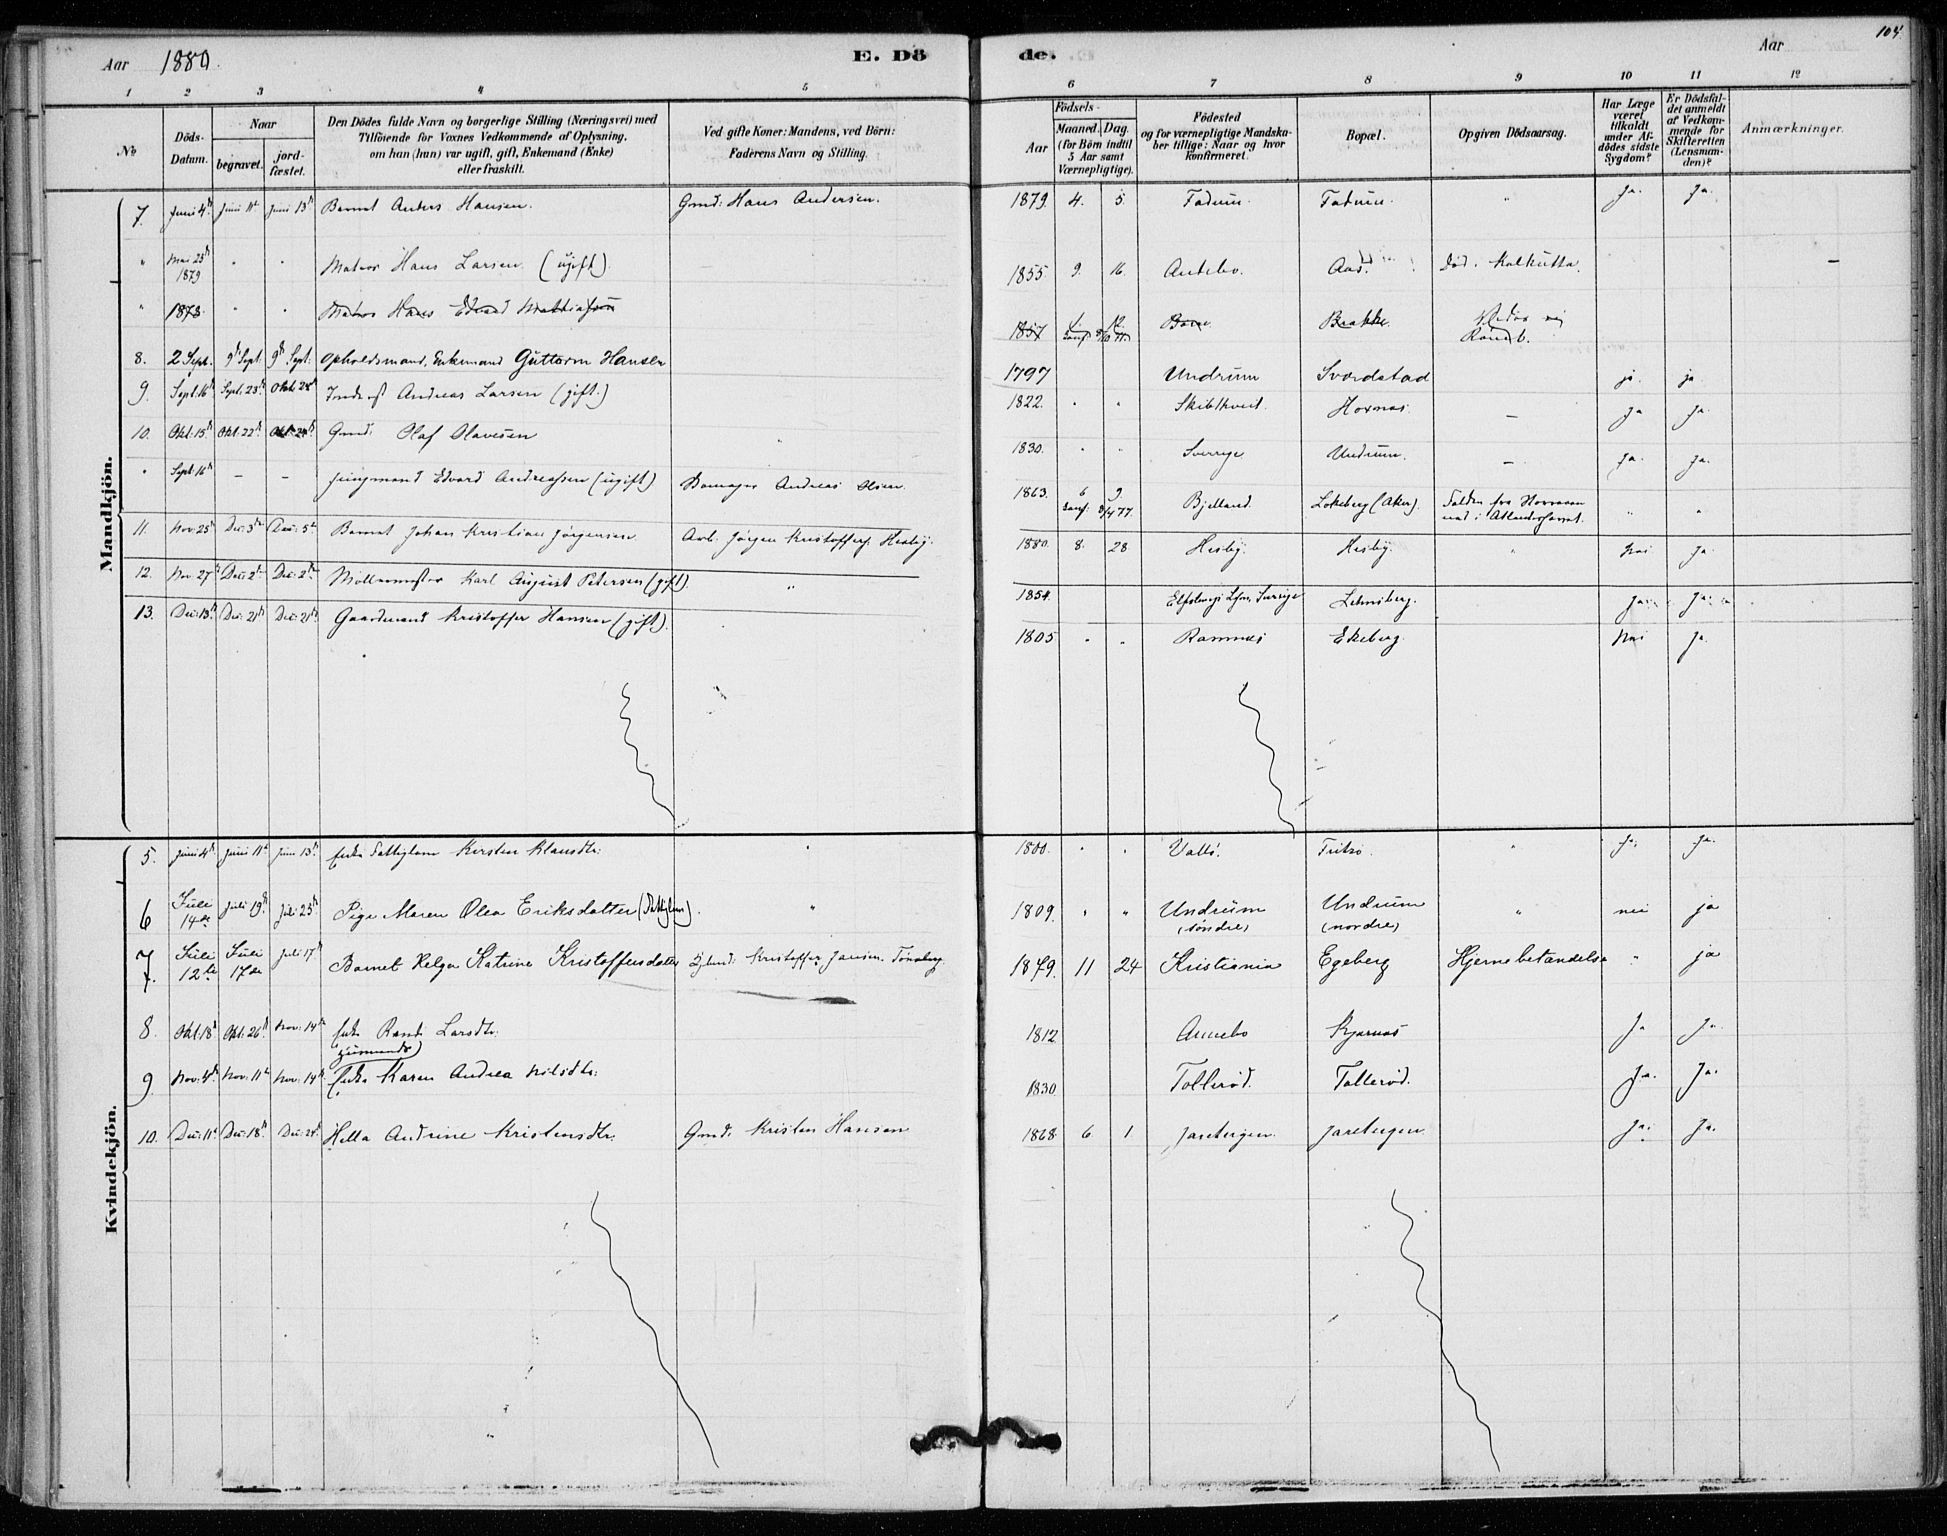 Aar 1880. E. Dö de. Aar 104
1 2 3 4 5 6 7 8 9 10 11 12
No Döds-Datum. Naar begravet. jord-fæstet. Den Dödes fulde Navn og borgerlige Stilling (Næringsvei) med Tilföiende for Voxnes Vedkommende af Oplysning, om han (hun) var ugift, gift, Enkemand (Enke) eller fraskilt. Ved gifte Koner: Mandens, ved Börn: Faderens Navn og Stilling. Födsels- Aar Maaned. Dag. (for Börn indtil 5 Aar samt Værnepligtige). Födested og for værnepligtige Mandskaber tillige: Naar og hvor konfirmeret. Bopæl. Opgiven Dödsaarsag. Har Læge været tilkaldt under Afdödes sidste Sygdom? Er Dödsfaldet anmeldt af Vedkommende for Skifteretten (Lensmanden)? Anmærkninger.
Mandkjön.
7. Juni 4de Juni 11te Juni 13de Barnet Anders Hansen. Gmd: Hans Andersen. 1879. 4. 5 Fadum. Fadum. " Ja. Ja.
" Mai 23de 1879 " " Matros Hans Larsen (ugift). — 1855. 9. 16. Død. Kalkutta. —
" 1878 " " Matros Hans Edvard Mathiassen 1857 Brakke.
8. 2 Sept. 9de Sept. 9de Sept: Opholdsmand, Enkemand Guttorm Hansen 1797 Undrum Sværdstad ja. ja
9. Sept: 16de Sept: 23de Okt: 24de Inderst Andreas Larsen (gift.) 1822. " " Hoxnæs. — Ja Ja.
10. Okt: 15de Okt: 22de Okt: 24de Gmd. Olaf Olavesen " 1830. " " Sverige Undrum. — Ja. Ja.
" Sept: 16de — — Jungmand Edvard Andreassen (ugift) Andreas Olsen. 1863. 6 9 Bjelland. Lokeberg (Aker). Falden fra ned i Atlanterhavet. " "
11. Nov: 25de Dec: 3die Dec: 5te Barnet Johan Kristian Jørgensen Arb. Jørgen Kristoffers. Hesby. 1880. 8. 28 Hesby. Hesby. " Nei Ja.
12. Nov 27de Dec: 2den Dec: 2den Møllemester Karl August Petersen (gift). " 1854. Sverige Ja. Ja.
13. Dec: 13de Dec: 21de Dec: 21de Gaardmand Kristoffer Hansen (gift). 1805 " " Ramnæs Ekeberg. Nei Ja.
Kvindekjön.
5. Juni 4de Juni 11te Juni 13de Enke Fattiglem Kirsten Klausdtr. " 1800. " " Vallø. " Ja. Ja.
6 Juli 14de Juli 19de Juli 25de Pige Maren Olea Eriksdatter (Fattiglem). " 1809. " " Undrum (søndre) Undrum (nordre) " nei ja
7. Juli 12te Juli 17de Juli 17de Barnet Helga Katrine Kristoffersdatter Kristoffer Jansen. Tønsberg. 1879. 11 24 Kristiania Egeberg Hjernebetændelse " ja
8. Okt: 18de Okt: 26de Nov: 14de Enke Randi Larsdtr. 1812 Annebo Kjærnes Ja Ja.
9 Nov: 4de Nov: 11te Nov: 14de Enke Karen Andrea Nilsdtr. 1830 Tollerød. Tollerød. Ja. Ja.
10. Dec: 11te Dec: 18de Dec: 21de Hella Andrine Kristensdtr. Gmd. Kristen Hansen 1868. 6 1. Jaretergen. Jaretergen. Ja. Ja.